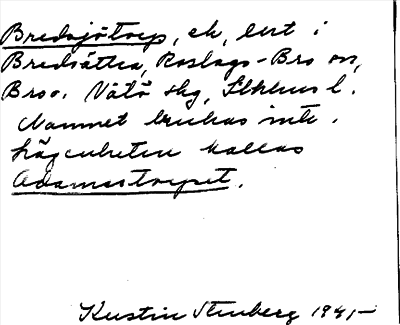 Bredsjötorp, ek, lert i
Bredsätra, Roslags-Bro sn,
Bro o. Vätö skg, Sthlms l.
Namnet brukas inte.
Lägenheten kallas
Adamstorpet.
Kerstin Stenberg 1941